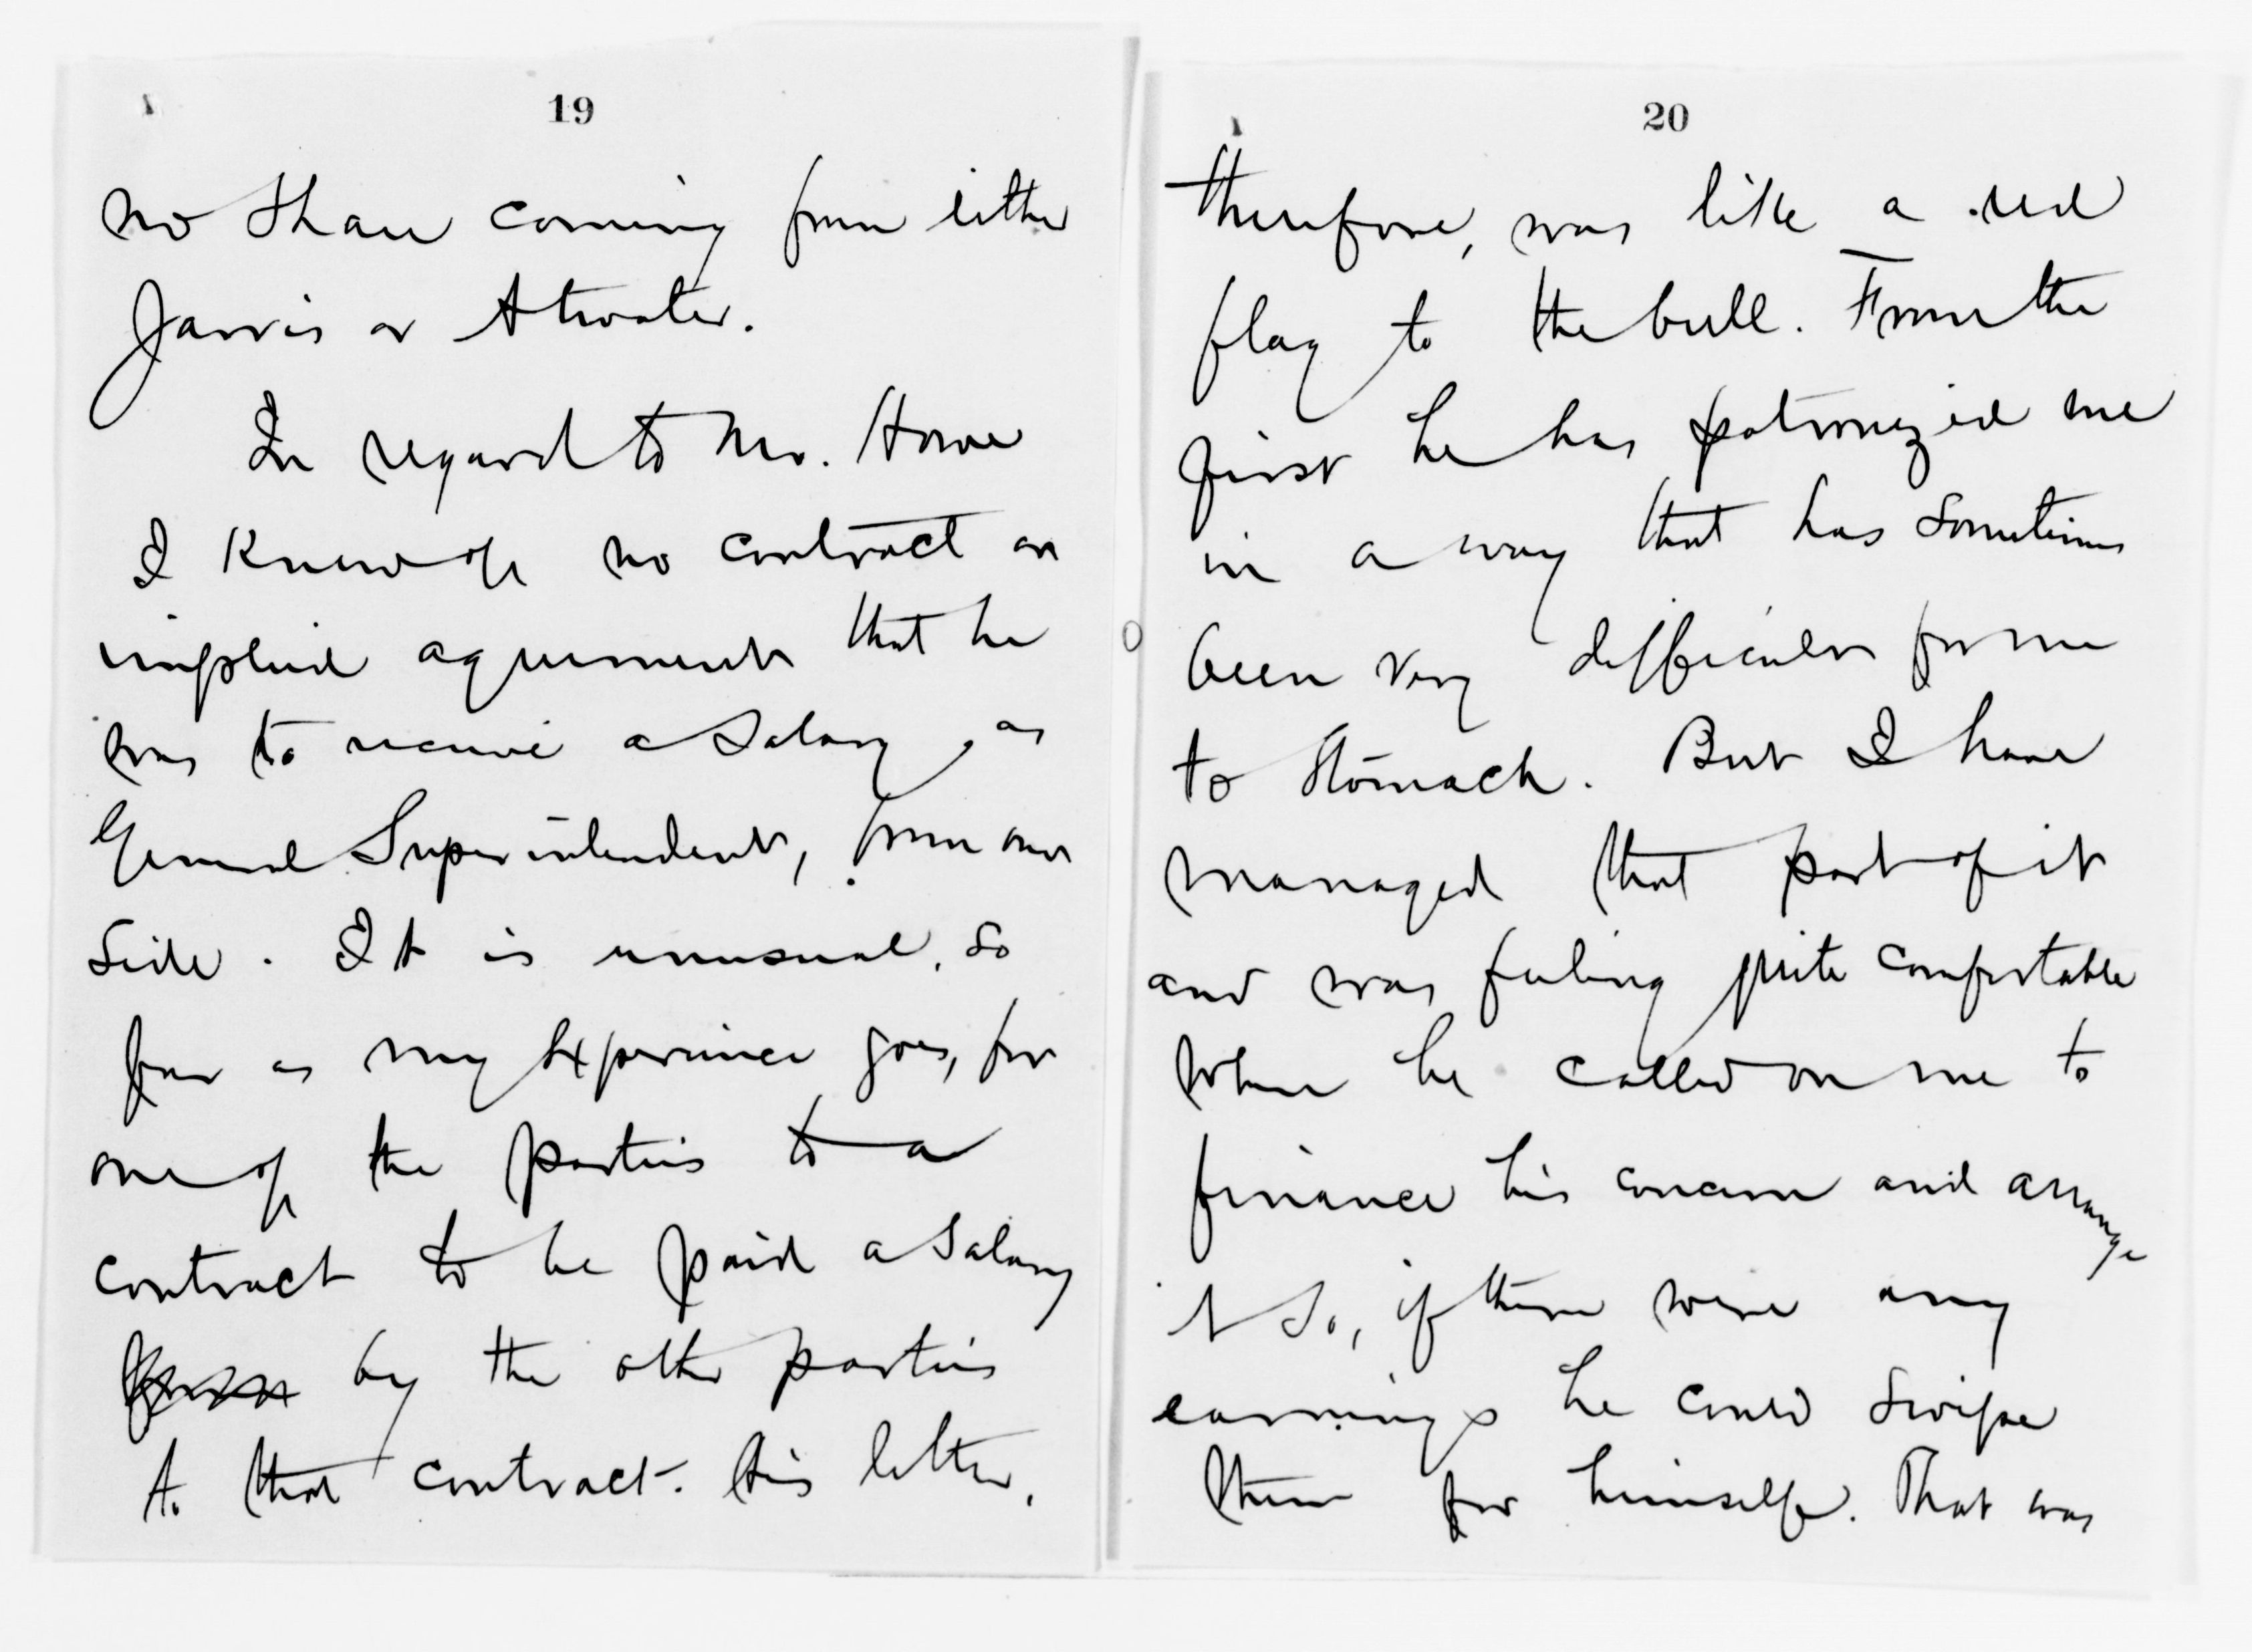 19
no share coming from either
Jarvis or Atwater.
In regard to Mr. Howe
I know of no contract or
implied agreement that he
was to receive a salary, as
General Superintendent, from our
side. It is unusual, so
far as my experience goes, for
one of the parties to a
contract to be paid a salary
by the other parties
to that contract. His letter,
20
therefore, was like a red
flag to the bull. From the
first he has patronized me
in a way that has sometimes
been very difficult for me
to stomach. But I have
managed that part of it
and was feeling quite comfortable
when he called on me to
finance his concern and arrange
it so, if there were any
earnings he could swipe
them for himself. That was